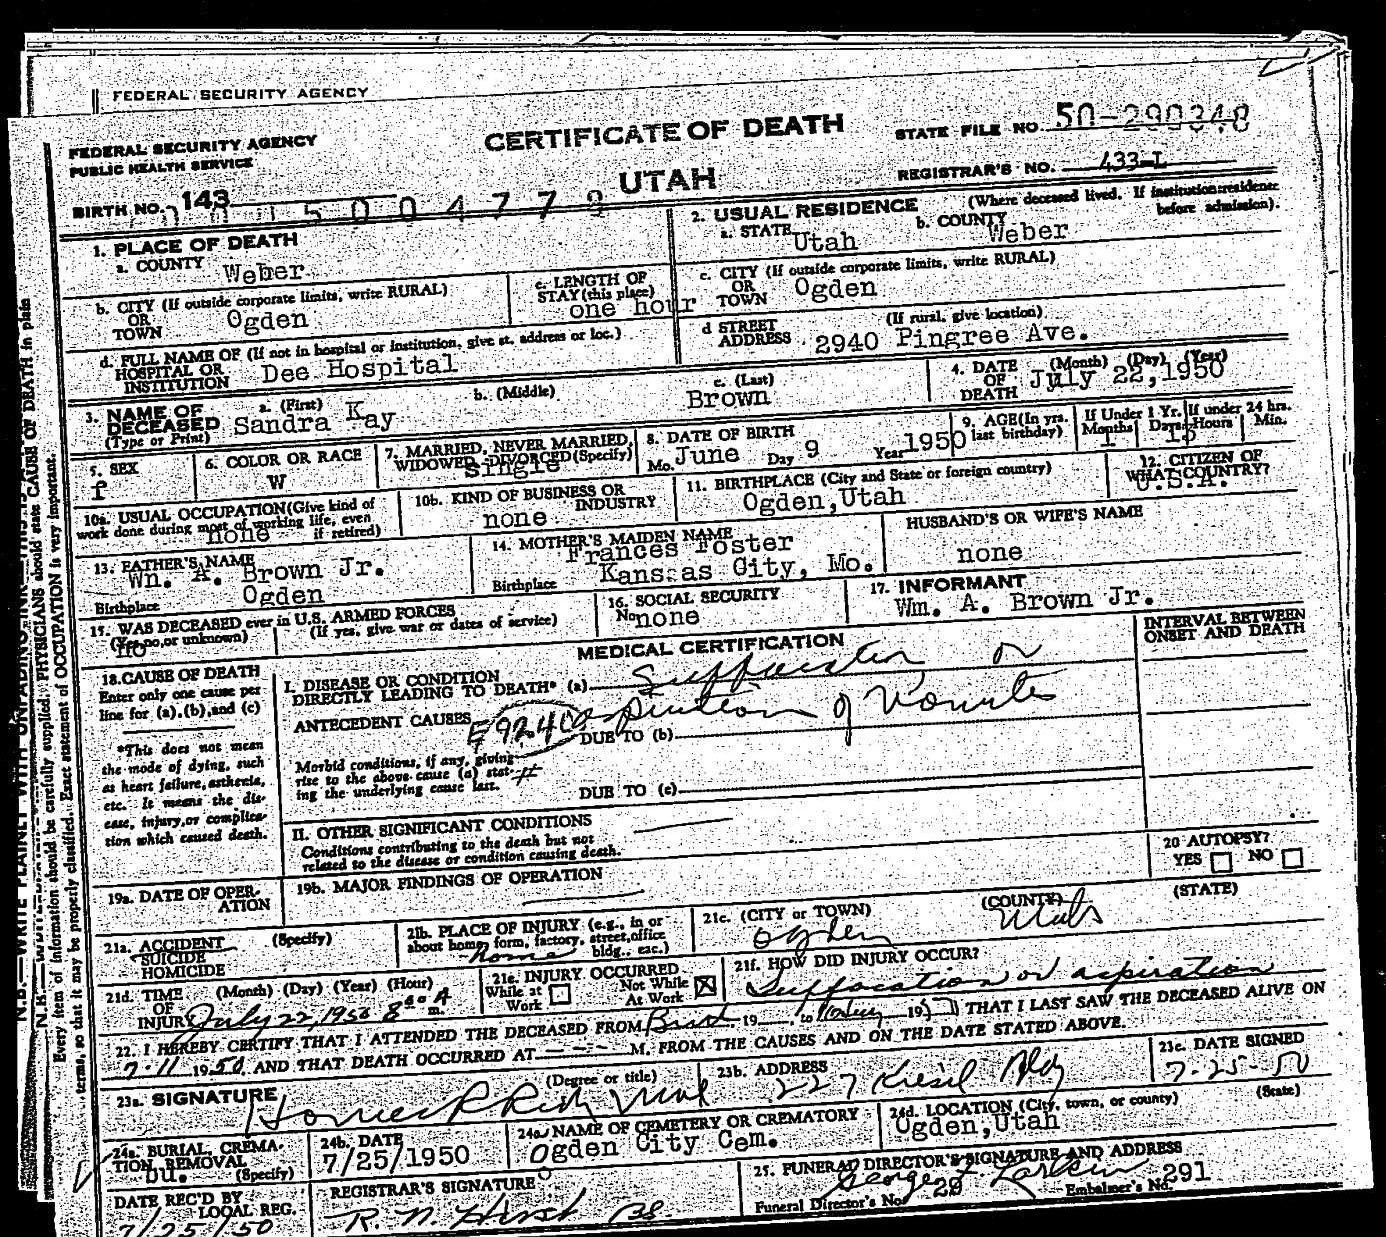 FEDERAL SECURITY AGENCY
FEDERAL SECURITY AGENCY
PUBLIC HEALTH SERVICE
CERTIFICATE OF DEATH
UTAH
STATE FILE NO. 50-290348
REGISTRAR'S NO. 433-L
BIRTH NO. 143
1. PLACE OF DEATH
a. COUNTY Weber
2. USUAL RESIDENCE (Where deceased lived. If institution: residence before admission).
a. STATE Utah b. COUNTY Weber
b. CITY (If outside corporate limits, write RURAL) OR TOWN Ogden
c. LENGTH OF STAY (this place) one hour
c. CITY (If outside corporate limits, write RURAL) OR TOWN Ogden
d. FULL NAME OF (If not in hospital or institution, give st. address or loc.) HOSPITAL OR INSTITUTION Dee Hospital
d STREET ADDRESS (If rural, give location) 2940 Pingree Ave.
3. NAME OF DECEASED (Type or Print) a. (First) Sandra Kay b. (Middle) c. (Last) Brown
4. DATE OF DEATH (Month) (Day) (Year) July 22, 1950
5. SEX f
6. COLOR OR RACE W
7. MARRIED, NEVER MARRIED, WIDOWED, DIVORCED (Specify) Single
8. DATE OF BIRTH Mo. June Day 9 Year 1950
9. AGE (In yrs. last birthday) If Under 1 Yr. Months 1 Days 13 If under 24 hrs. Hours Min.
10a. USUAL OCCUPATION (Give kind of work done during most of working life, even if retired) none
10b. KIND OF BUSINESS OR INDUSTRY none
11. BIRTHPLACE (City and State or foreign country) Ogden, Utah
12. CITIZEN OF WHAT COUNTRY? U.S.A.
13. FATHER'S NAME Wn. A. Brown Jr.
Birthplace Ogden
14. MOTHER'S MAIDEN NAME Frances Foster
Birthplace Kanssas City, Mo.
HUSBAND'S OR WIFE'S NAME none
15. WAS DECEASED ever in U.S. ARMED FORCES (Yes, no, or unknown) (If yes, give war or dates of service) no
16. SOCIAL SECURITY No none
17. INFORMANT Wm. A. Brown Jr.
MEDICAL CERTIFICATION
INTERVAL BETWEEN ONSET AND DEATH
18. CAUSE OF DEATH
Enter only one cause per line for (a), (b), and (c)
*This does not mean the mode of dying, such as heart failure, asthenia, etc. It means the disease, injury, or complication which caused death.
I. DISEASE OR CONDITION DIRECTLY LEADING TO DEATH* (a) Suffocation or
aspiration of Vomitus
ANTECEDENT CAUSES E 924
DUE TO (b)
Morbid conditions, if any, giving rise to the above cause (a) stating the underlying cause last.
DUE TO (c)
II. OTHER SIGNIFICANT CONDITIONS
Conditions contributing to the death but not related to the disease or condition causing death.
20 AUTOPSY?
YES NO
19a. DATE OF OPERATION
19b. MAJOR FINDINGS OF OPERATION
21a. ACCIDENT (Specify)
SUICIDE
HOMICIDE
21b. PLACE OF INJURY (e.g., in or about home, farm, factory, street, office bldg., etc.) home
21c. (CITY or TOWN) (COUNTY) (STATE)
Ogden Utah
21d. TIME OF INJURY (Month) (Day) (Year) (Hour) July 22, 1950 8 00 A m.
21e. INJURY OCCURRED While at Work Not While At Work
21f. HOW DID INJURY OCCUR? Suffocation or aspiration
22. I HEREBY CERTIFY THAT I ATTENDED THE DECEASED FROM Birth, 19 , to 19 THAT I LAST SAW THE DECEASED ALIVE ON
7-11 1950, AND THAT DEATH OCCURRED AT M. FROM THE CAUSES AND ON THE DATE STATED ABOVE.
23a. SIGNATURE (Degree or title) Homer R Rich
23b. ADDRESS 227 Kiesel Bldg
23c. DATE SIGNED 7-25-50
24a. BURIAL, CREMATION, REMOVAL (Specify) bu.
24b. DATE 7/25/1950
24c. NAME OF CEMETERY OR CREMATORY Ogden City Cem.
24d. LOCATION (City, town, or county) (State) Ogden, Utah
DATE REC'D BY LOCAL REG. 7/25/50
REGISTRAR'S SIGNATURE R. N. Hirst
25. FUNERAL DIRECTOR'S SIGNATURE AND ADDRESS George Larkin
Funeral Director's No. 29 Embalmer's No. 291
Every item of information should be carefully supplied. PHYSICIANS should state CAUSE OF DEATH in plain
terms, so that it may be properly classified. Exact statement of OCCUPATION is very important.